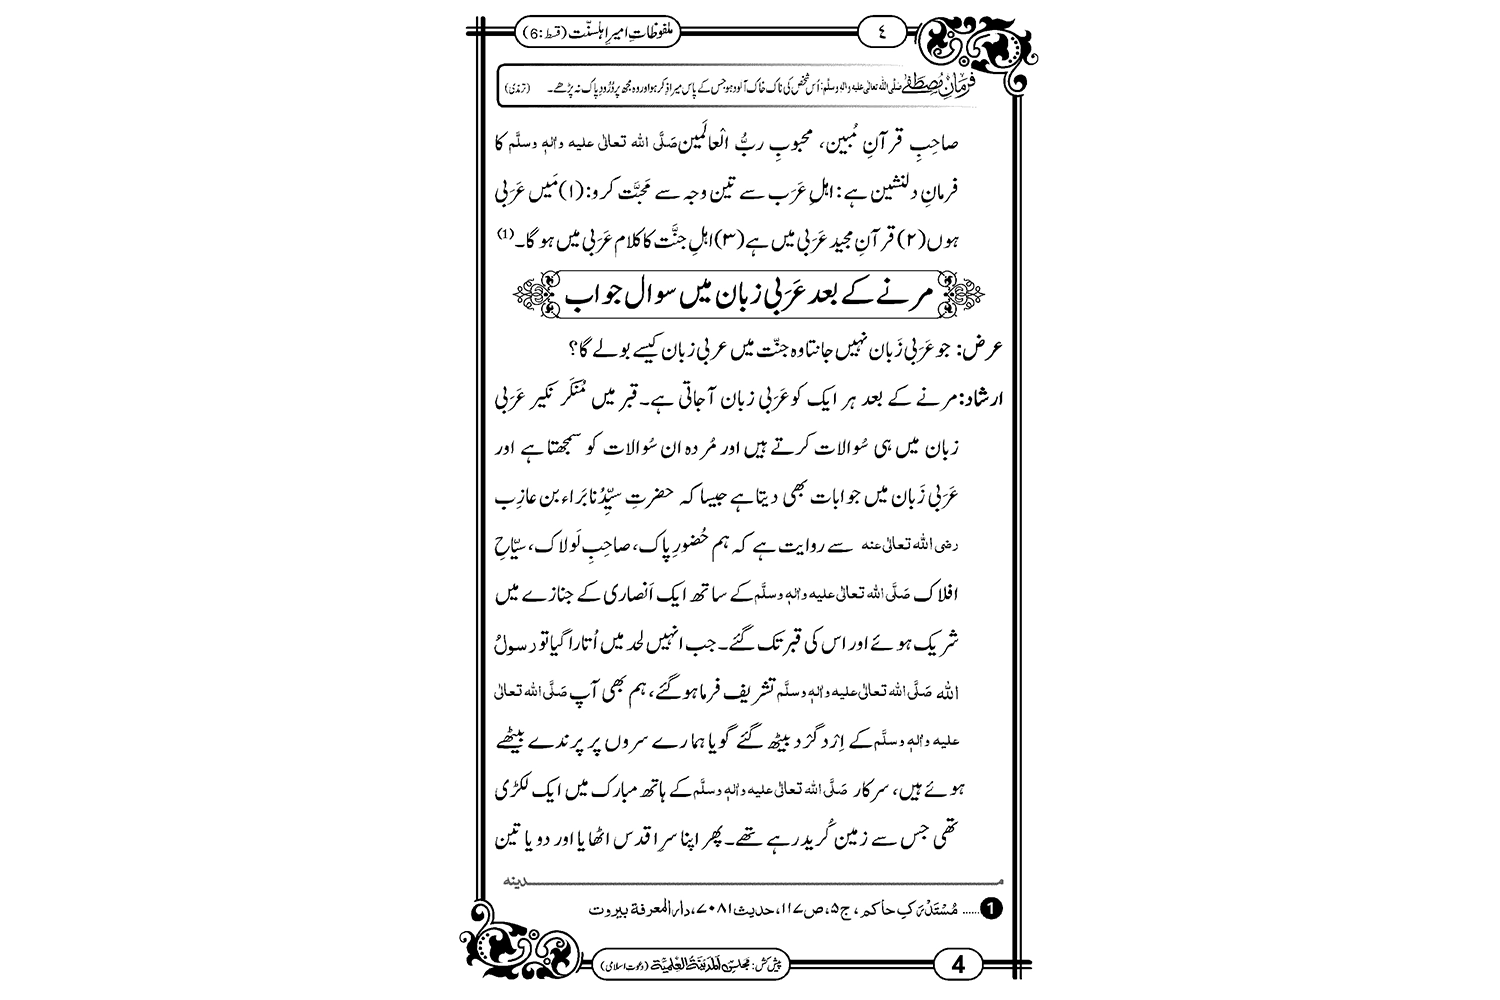 ملفوظاتِ امیرِ اہلسنّت (قسط:6)
٤
فرمانِ مُصطَفٰے صلَّی اللہ تعالٰی علیہ واٰلہٖ وسلَّم: اُس شخص کی ناک خاک آلود ہو جس کے پاس میرا ذِکر ہو اور وہ مجھ پر دُرُودِ پاک نہ پڑھے۔ (ترمذی)
صاحِبِ قرآنِ مُبین، محبوبِ ربُّ الْعالَمین صَلَّی اللہ تعالٰی علیہ واٰلہٖ وسلَّم کا
فرمانِ دلنشین ہے: اہلِ عَرَب سے تین وجہ سے مَحبَّت کرو: (۱) مَیں عَرَبی
ہوں (۲) قرآنِ مجید عَرَبی میں ہے (۳) اہلِ جنَّت کا کلام عَرَبی میں ہو گا۔ (1)
مرنے کے بعد عَرَبی زبان میں سوال جواب
عرض: جو عَرَبی زَبان نہیں جانتا وہ جنّت میں عربی زبان کیسے بولے گا؟
ارشاد: مرنے کے بعد ہر ایک کو عَرَبی زبان آجاتی ہے۔ قبر میں مُنکَر نکیر عَرَبی
زبان میں ہی سُوالات کرتے ہیں اور مُردہ ان سُوالات کو سمجھتا ہے اور
عَرَبی زَبان میں جوابات بھی دیتا ہے جیسا کہ حضرتِ سیِّدُنا بَراء بن عازِب
رضی اللہ تعالٰی عنہ سے روایت ہے کہ ہم حُضورِ پاک، صاحِبِ لَولاک، سیّاحِ
افلاک صَلَّی اللہ تعالٰی علیہ واٰلہٖ وسلَّم کے ساتھ ایک اَنصاری کے جنازے میں
شریک ہوئے اور اس کی قبر تک گئے۔ جب انہیں لحد میں اُتارا گیا تو رسولُ
اللہ صَلَّی اللہ تعالٰی علیہ واٰلہٖ وسلَّم تشریف فرما ہو گئے، ہم بھی آپ صَلَّی اللہ تعالٰی
علیہ واٰلہٖ وسلَّم کے اِرْد گرْد بیٹھ گئے گویا ہمارے سروں پر پرندے بیٹھے
ہوئے ہیں، سرکار صَلَّی اللہ تعالٰی علیہ واٰلہٖ وسلَّم کے ہاتھ مبارک میں ایک لکڑی
تھی جس سے زمین کُرید رہے تھے۔ پھر اپنا سرِ اقدس اٹھایا اور دو یا تین
مـــدینه
1 ...... مُسْتَدْرَک حاکم، ج۵، ص۱۱۷، حدیث ۷۰۸۱، دار المعرفة بیروت
پیش کش: مجلس اَلْمَدِیْنَۃُ الْعِلْمِیَّۃ (دعوتِ اسلامی)
4